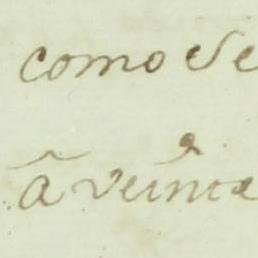 como se
â veinte